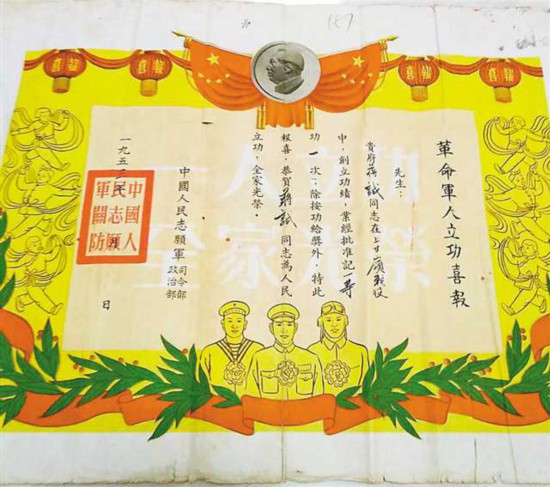 喜報
喜報
喜報
喜報
革命軍人立功喜報
先生：
貴府蔣誠同志在上甘嶺战役
中，創立功績，業經批准記一等
功一次；除按功給獎外，特此
報喜。恭賀蔣誠同志為人民
立功，全家光榮。
中國人民志願軍
司令部
政治部
一九五三年
月
日
中國人
民志願
軍關防
一人立功
全家光榮